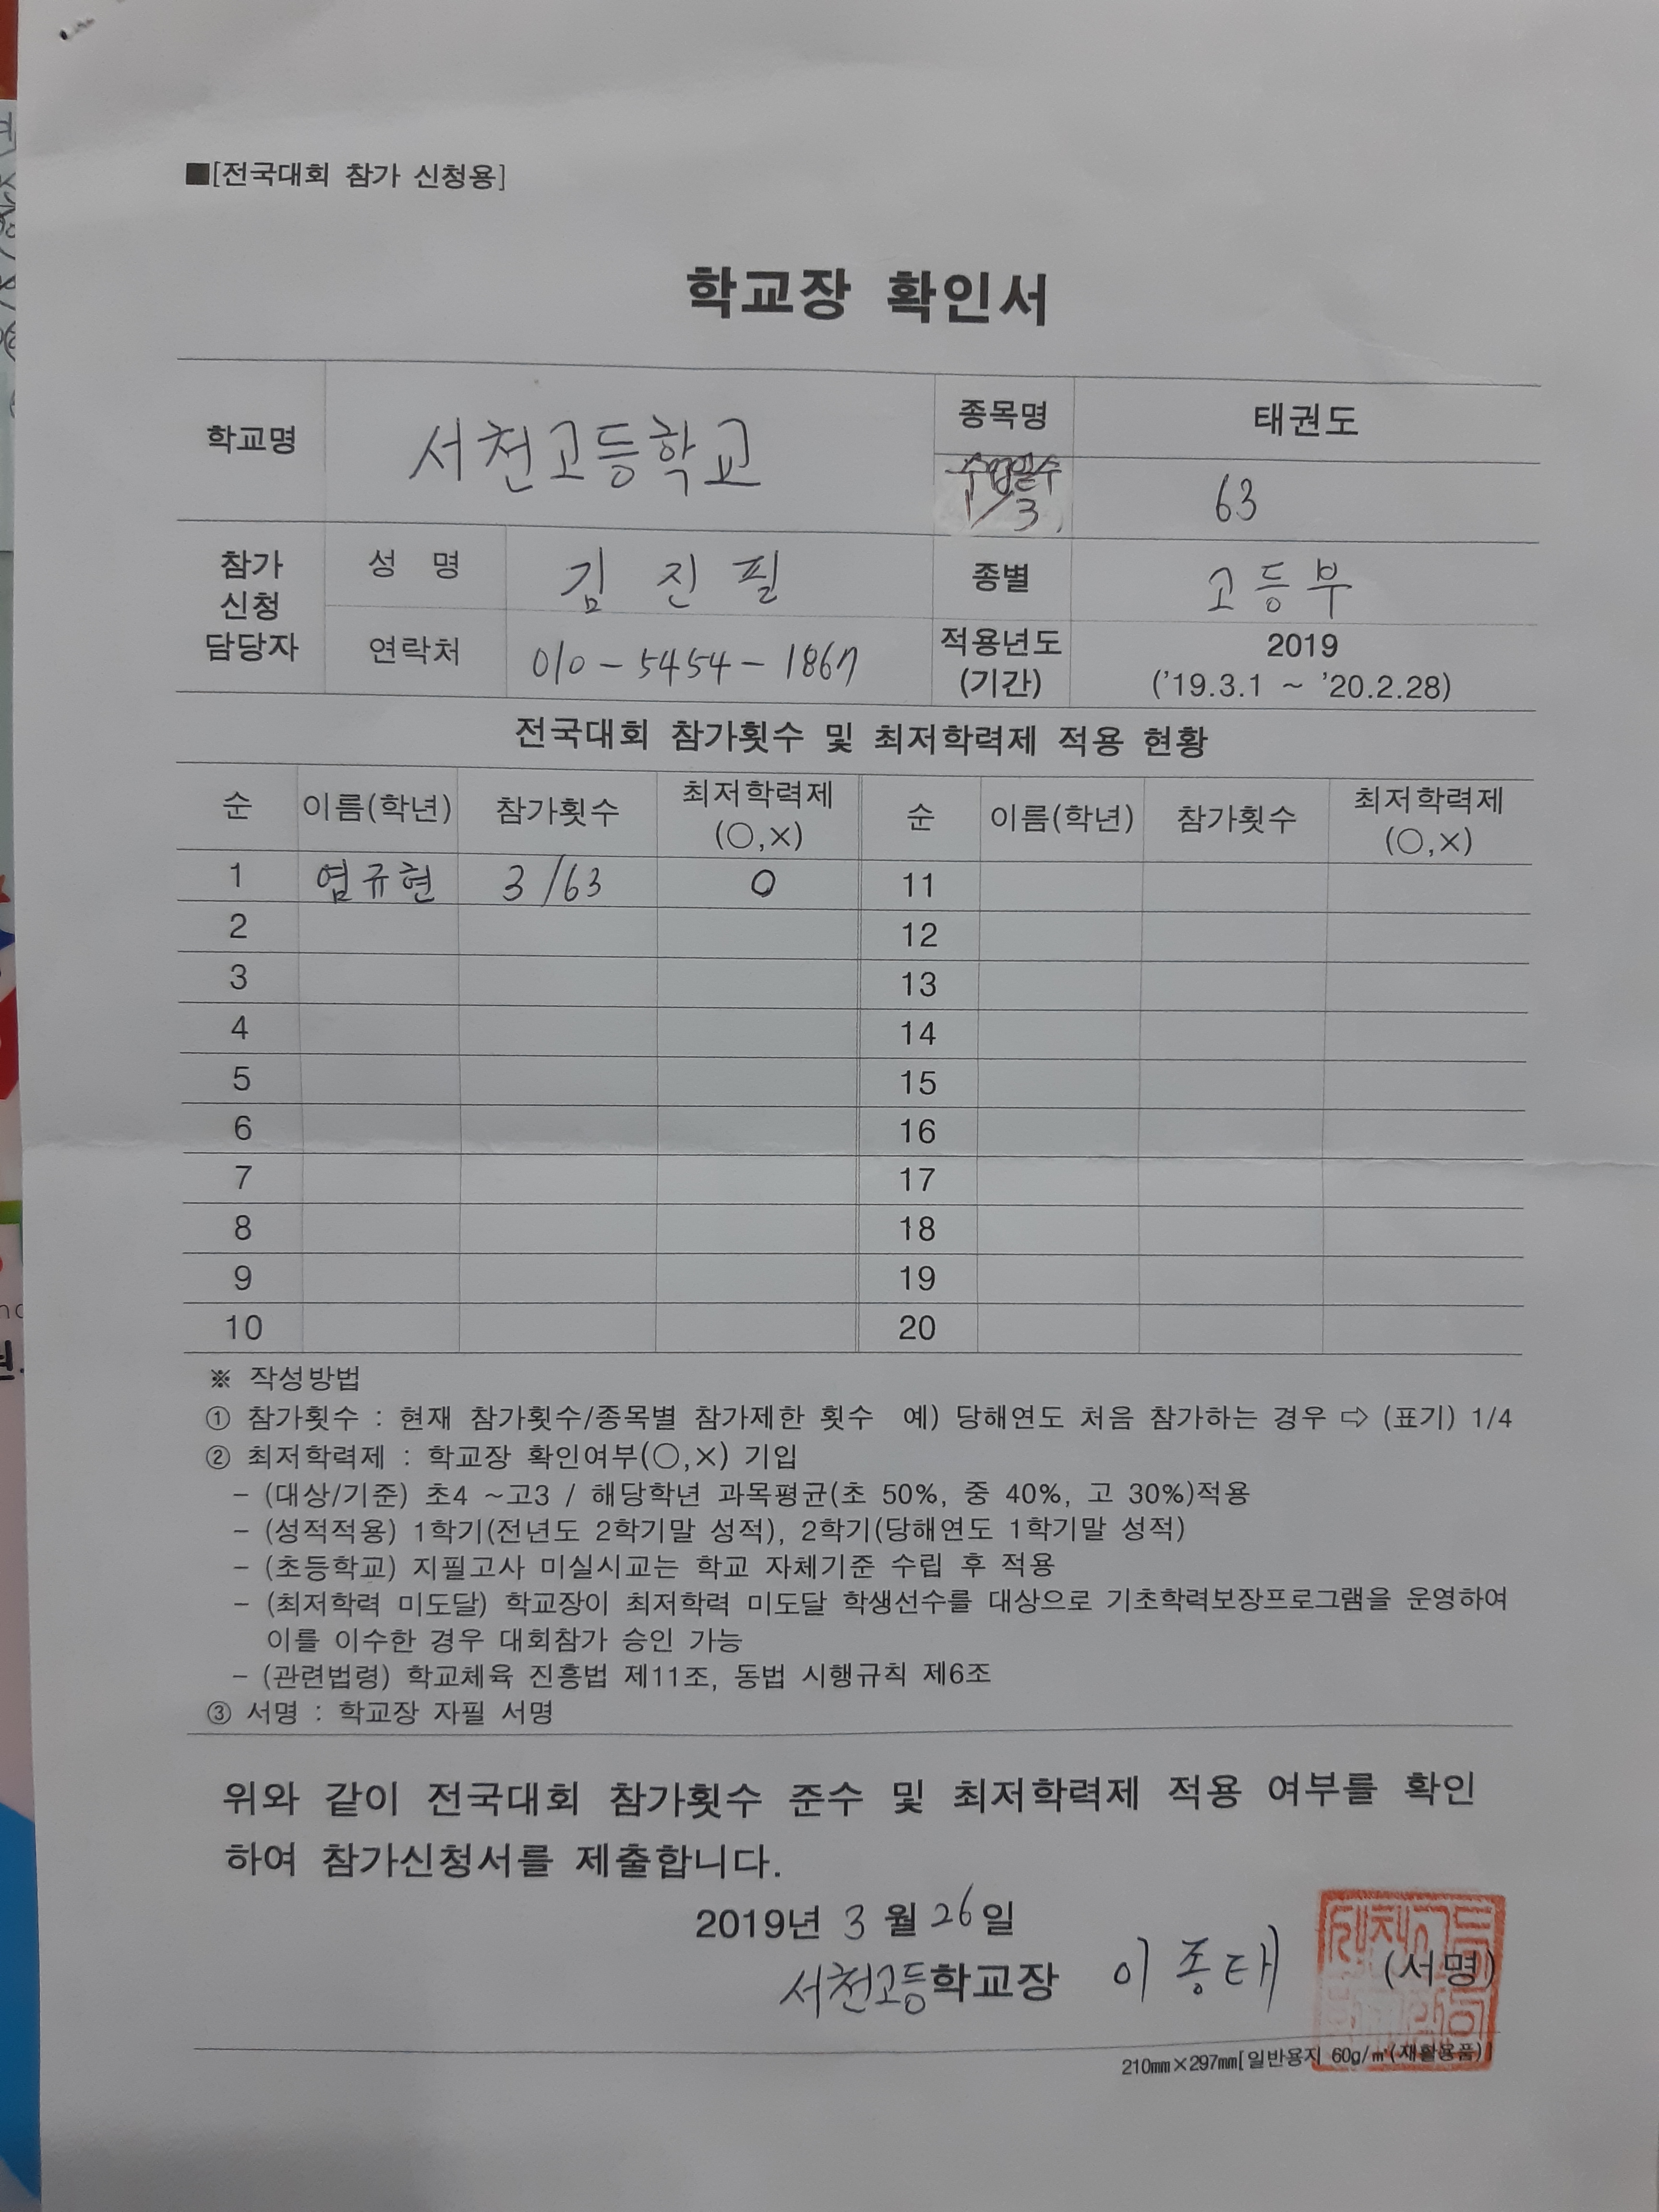 ■[전국대회 참가 신청용]
학교장 확인서
학교명 서천고등학교 종목명 태권도
수업일수 1/3 63
참가 신청 담당자 성 명 김 진 필 종별 고등부
연락처 010-5454-1867 적용년도 (기간) 2019 ('19.3.1 ~ '20.2.28)
전국대회 참가횟수 및 최저학력제 적용 현황
순 이름(학년) 참가횟수 최저학력제 (○,×) 순 이름(학년) 참가횟수 최저학력제 (○,×)
1 염규현 3/63 O 11
2 12
3 13
4 14
5 15
6 16
7 17
8 18
9 19
10 20
※ 작성방법
① 참가횟수 : 현재 참가횟수/종목별 참가제한 횟수 예) 당해연도 처음 참가하는 경우 ⇨ (표기) 1/4
② 최저학력제 : 학교장 확인여부(○,×) 기입
- (대상/기준) 초4 ~고3 / 해당학년 과목평균(초 50%, 중 40%, 고 30%)적용
- (성적적용) 1학기(전년도 2학기말 성적), 2학기(당해연도 1학기말 성적)
- (초등학교) 지필고사 미실시교는 학교 자체기준 수립 후 적용
- (최저학력 미도달) 학교장이 최저학력 미도달 학생선수를 대상으로 기초학력보장프로그램을 운영하여
이를 이수한 경우 대회참가 승인 가능
- (관련법령) 학교체육 진흥법 제11조, 동법 시행규칙 제6조
③ 서명 : 학교장 자필 서명
위와 같이 전국대회 참가횟수 준수 및 최저학력제 적용 여부를 확인
하여 참가신청서를 제출합니다.
2019년 3 월 26 일
서천고등학교장 이 종 태 (서명)
210㎜×297㎜[일반용지 60g/㎡(재활용품)]